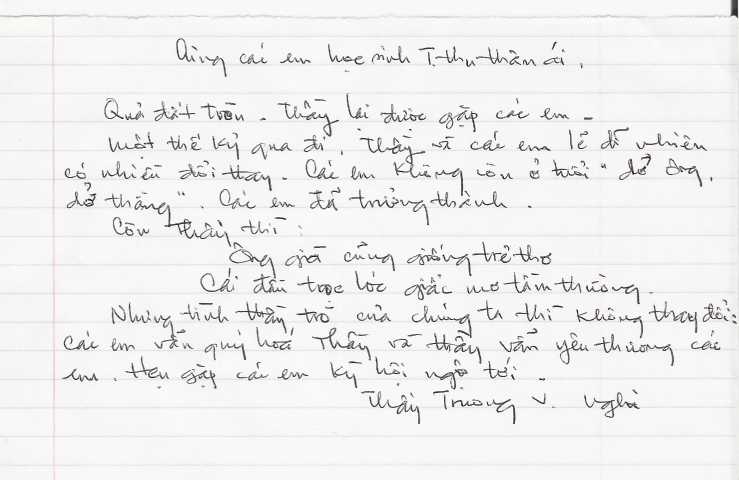 Cùng các em học sinh T.thu thân ái,
Quả đất tròn. Thầy lại được gặp các em.
Một thế kỷ qua đi, Thầy và các em lẽ dĩ nhiên
có nhiều đổi thay. Các em không còn ở tuổi "dở ông,
dở thằng". Các em đã trưởng thành.
Còn Thầy thì:
Ông già cũng giống trẻ thơ
Cái đầu trọc lóc giấc mơ tầm thường.
Nhưng tình thầy trò của chúng ta thì không thay đổi:
Các em vẫn quý hoá Thầy và thầy vẫn yêu thương các
em. Hẹn gặp các em kỳ hội ngộ tới.
Thầy Trương V. Nghĩa